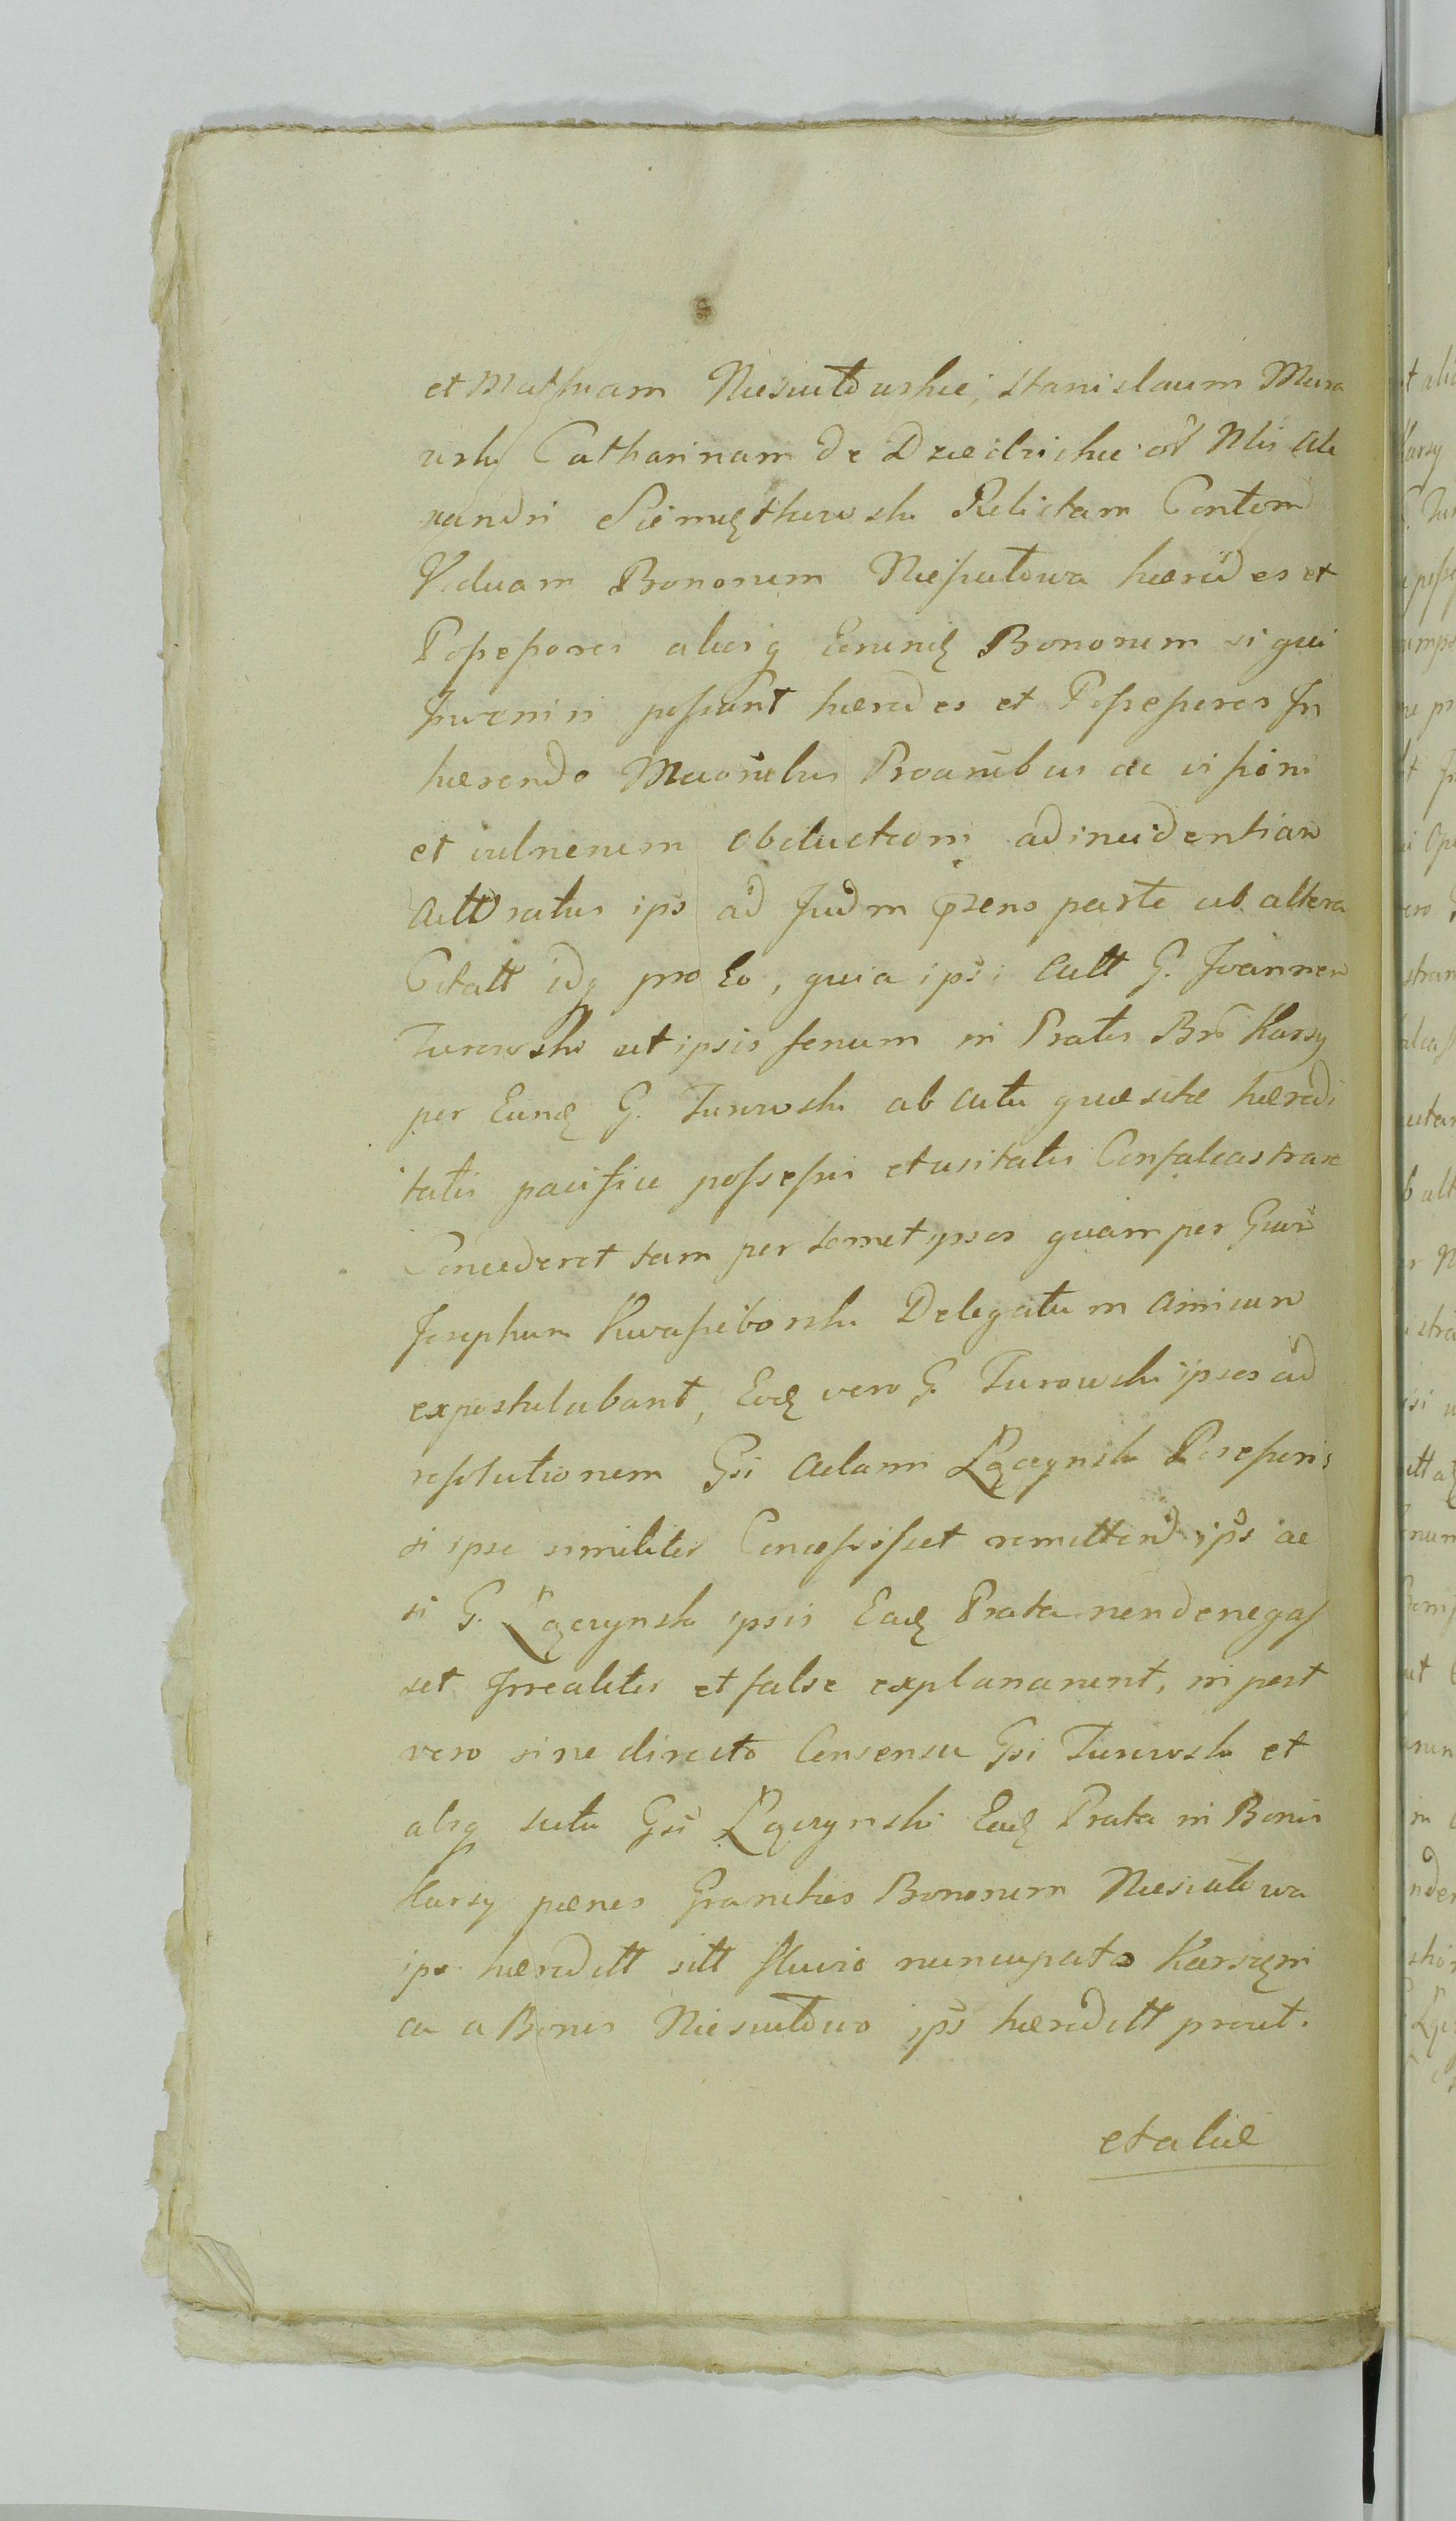 et Mathiam Niesułowskie, Stanislaum Mura
wski Catharinam de Dziedzickie olim Mfci Ale
xandri Siemiątkowski Relictam Contem
Viduam Bonorum Niesułowa hæredes et
Possessores aliosq Eorundę Bonorum si qui
Inveniri possunt hæredes et Possessores In
hærendo Manifestibus Protnibus ac visioni
et vulnerum obductioni ad incidentiam
Citatt idq pro Eo, quia ipsi Citt G. Joannem
Turowski ut ipsis fenum in Pratis Bnr Karsy
per Eundę G. Turowski ab actu quæsitæ hæredi
tatis pacifice possessis et usitatis Confalcastrare
Concederet tam per semet ipsos quam per Gnr
Josephum Kwasieborski Delegatum Amicum
expostulabant, Eodę vero G. Turowski ipsos ad
resolutionem Gsi Adami Łączynski Possessoris
si ipse similiter Concessisset remittend ips ac
si G. Łączynski ipsis Eadę Prata non denegas
set Irrealiter et false explanarunt, in post
vero sine directo Consensu Gsi Turowski et
absq scitu Gsi Łączynski Eadę Prata in Bonis
Karsy pænes Granities Bonorum Niesiułowa
ips hæreditt sitt fluvio nuncupato Karsięni
ca a Bonis Niesiułowo ips hæreditt prout.
et aliæ